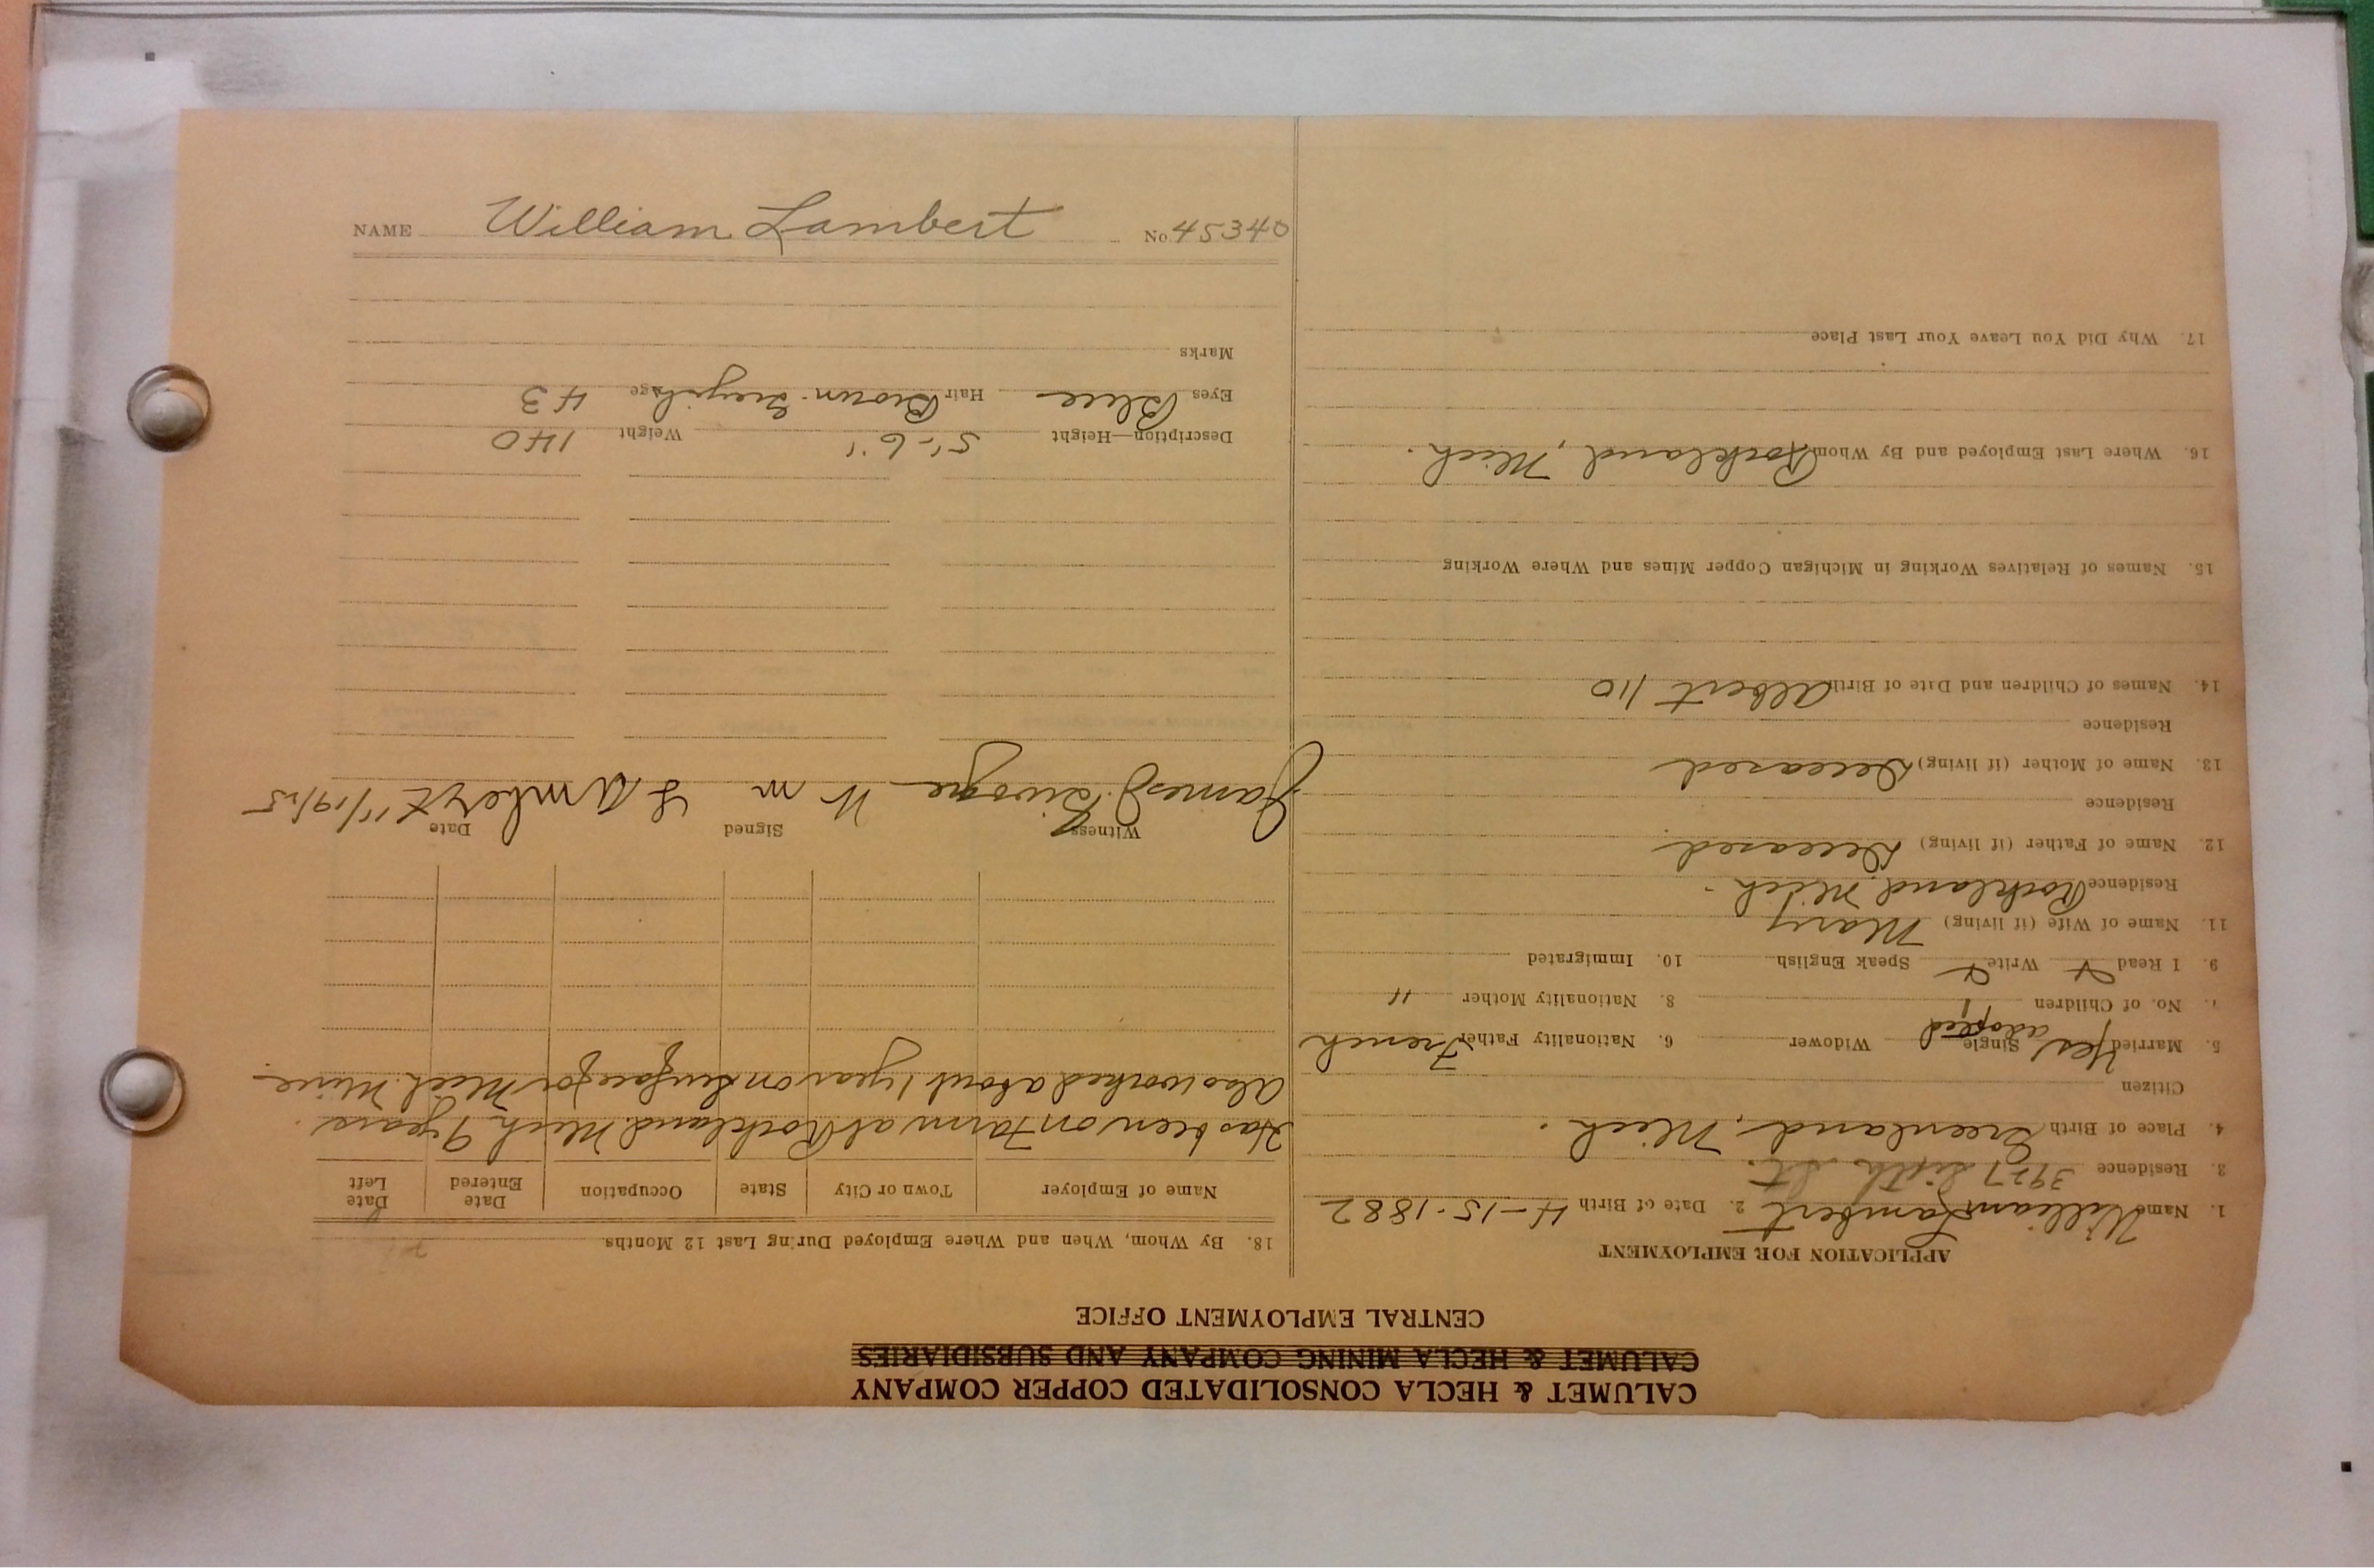 CALUMET & HECLA CONSOLIDATED COPPER COMPANY
CALUMET & HECLA MINING COMPANY AND SUBSIDIARIES
CENTRAL EMPLOYMENT OFFICE
APPLICATION FOR EMPLOYMENT
1. Name William Lambert 2. Date of Birth 4-15-1882
3. Residence 3927 Sixth St.
4. Place of Birth Greenland, Mich.
Citizen
5. Married Yes Single Widower 6. Nationality Father French
adopted
7. No. of Children 1 8. Nationality Mother "
9. I Read Write Speak English 10. Immigrated
11. Name of Wife (if living) Mary
Residence Rockland Mich.
12. Name of Father (if living) Deceased
Residence
13. Name of Mother (if living) Deceased
Residence
14. Names of Children and Date of Birth Albert 110
15. Names of Relatives Working in Michigan Copper Mines and Where Working
16. Where Last Employed and By Whom Rockland, Mich.
17. Why Did You Leave Your Last Place
18. By Whom, When and Where Employed During Last 12 Months
Name of Employer Town or City State Occupation Date Entered Date Left
Has been on Farm at Rockland Mich 9 years.
Also worked about 1 year on surface for Mich. Mine
Witness James Signed Wm Lambert Date 11/19/25
Description—Height 5'-6" Weight 140
Eyes Blue Hair Brown Greyish Age 43
Marks
NAME William Lambert No. 45340